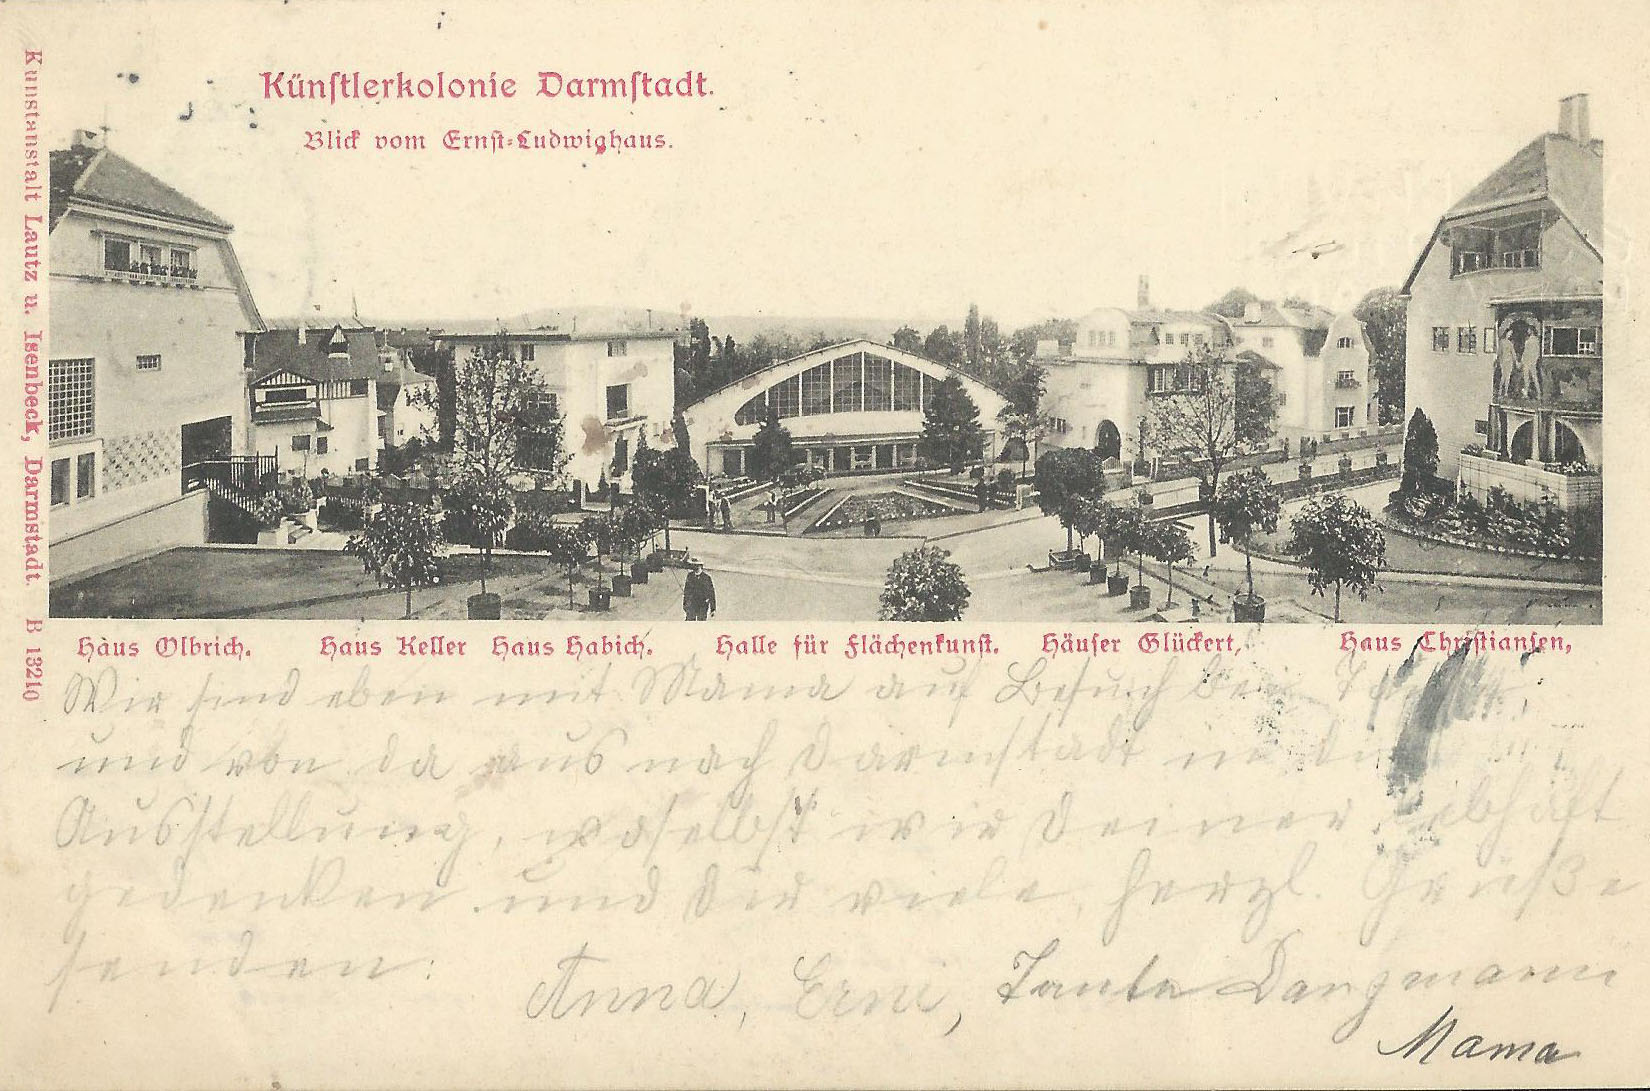 Künſtlerkolonie Darmſtadt.
Blick vom Ernſt-Ludwighaus.
Kunstanstalt Lautz u. Isenbeck, Darmstadt. B 13210
Haus Olbrich. Haus Keller Haus Habich. Halle für Flächenkunſt. Häuſer Glückert, Haus Chriſtianſen,
Wir sind eben mit Mama auf Besuch bei
und von da aus nach Darmstadt in die
Ausstellung, woselbst wir Deiner lebhaft
gedenken und Dir viele, herzl. Grüße
senden:
Anna, Erni, Tante
Mama